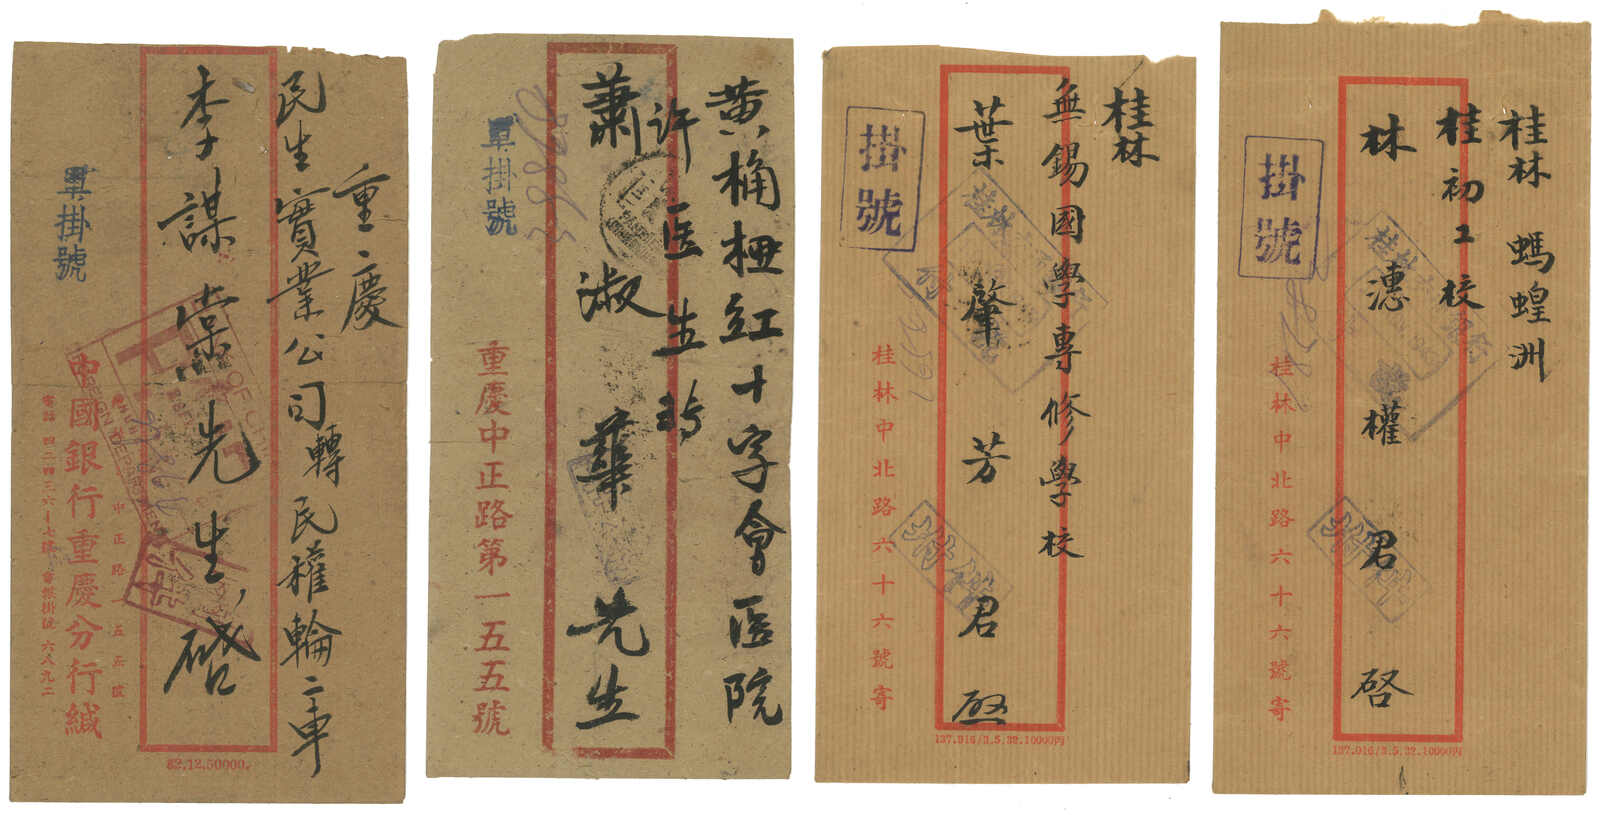 重慶
民生實業公司轉民權輪二車
李謀崇先生啓
單掛號
中正路一五五號
中國銀行重慶分行緘
82.12.50000.
黄桷椏紅十字會医院
許医生轉
蕭淑華先生
單掛號
重慶中正路第一五五號
桂林
無錫國學專修學校
葉肇芳君啟
掛號
附件
桂林中北路六十六號寄
137.916/3.5.32.10000円
桂林 螞蝗洲
桂初工校
林漶權君啓
掛號
附件
桂林中北路六十六號寄
137.916/3.5.32.10000円